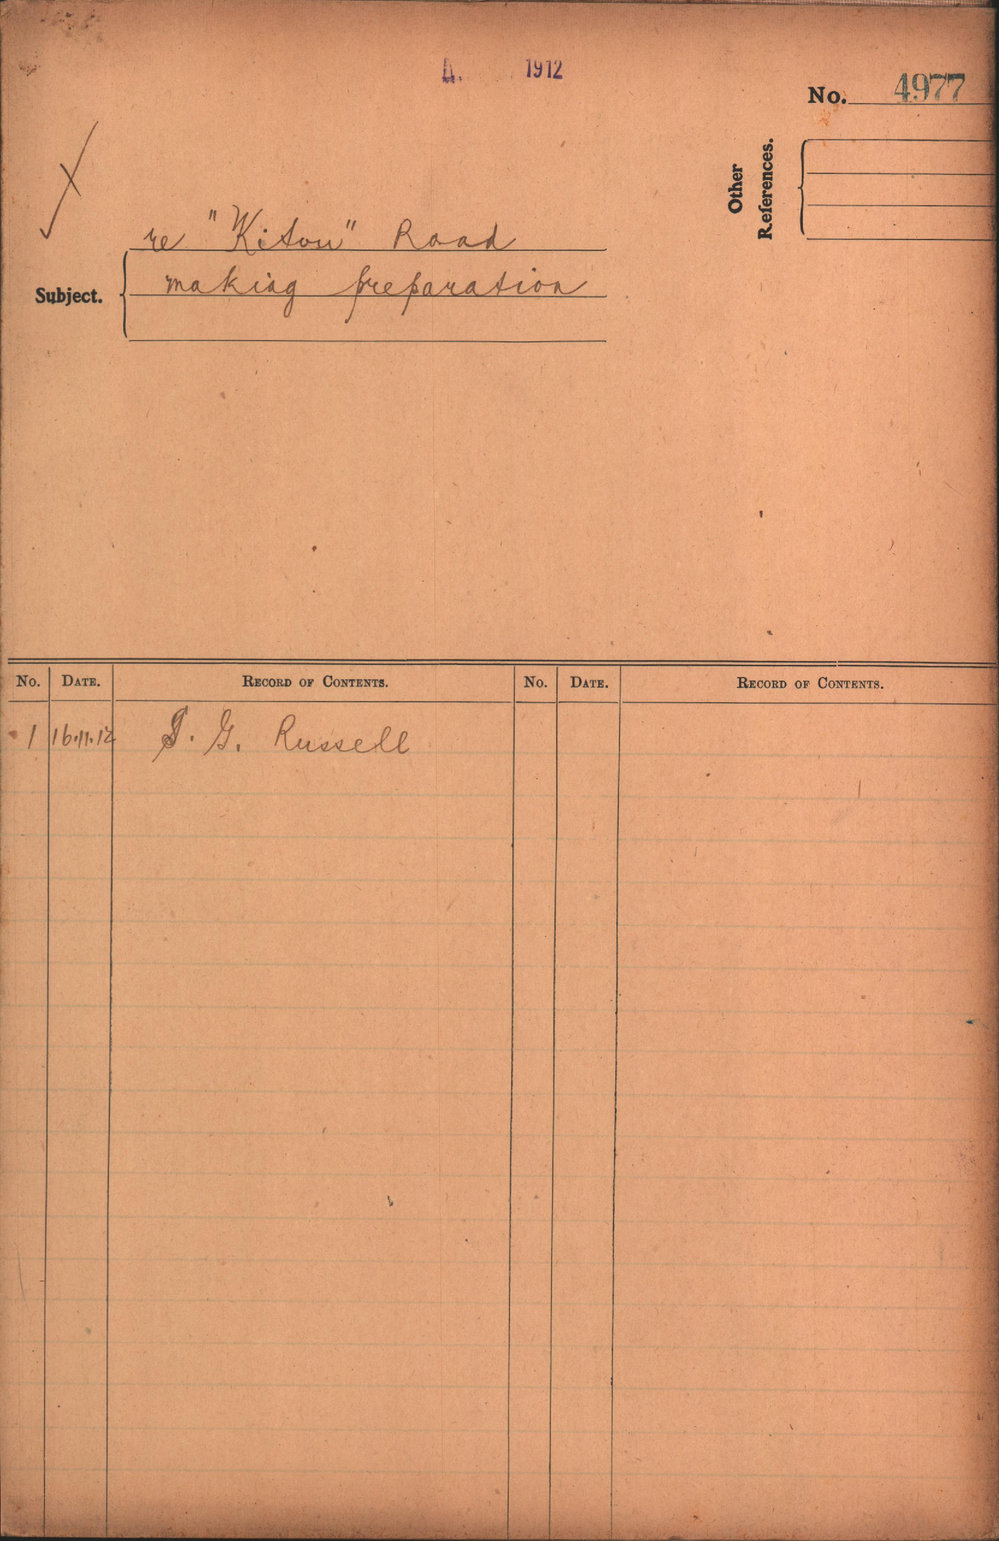 A. 1912
No. 4977
Other References.
re "Kitow" Road
Subject.
making preparation
No. DATE. RECORD OF CONTENTS. No. DATE. RECORD OF CONTENTS.
1 16.11.12 J. G. Russell